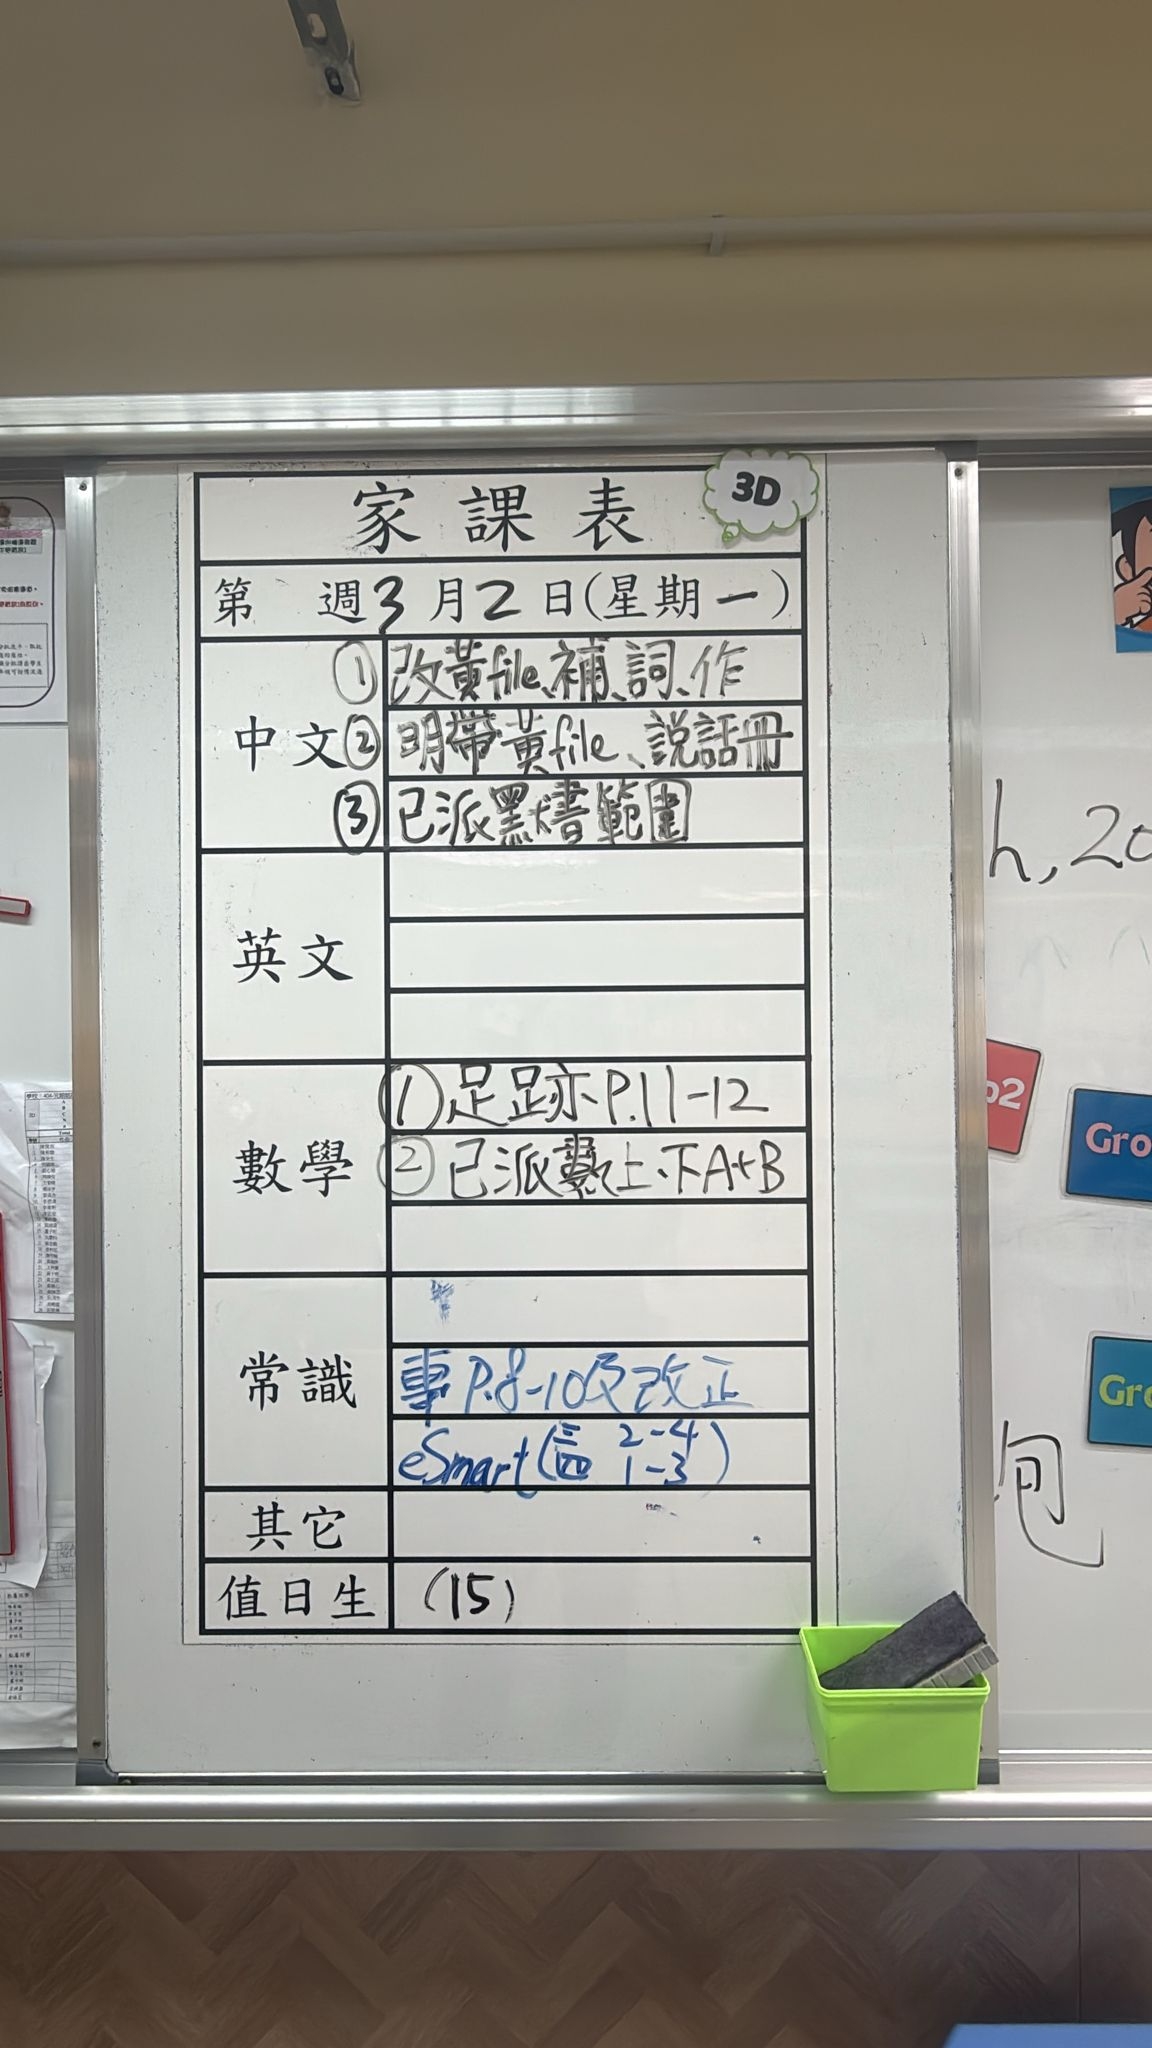 家課表
3D
第 週3月2日(星期一)
中文
①改黃file、補、詞、作
②明帶黃file、說話冊
③已派默書範圍
英文
數學
①足跡P.11-12
②已派數上、下A+B
常識
專P.8-10及改正
eSmart(三 2-4
四 1-3)
其它
值日生
(15)
h, 20
p2
Gro
Gro